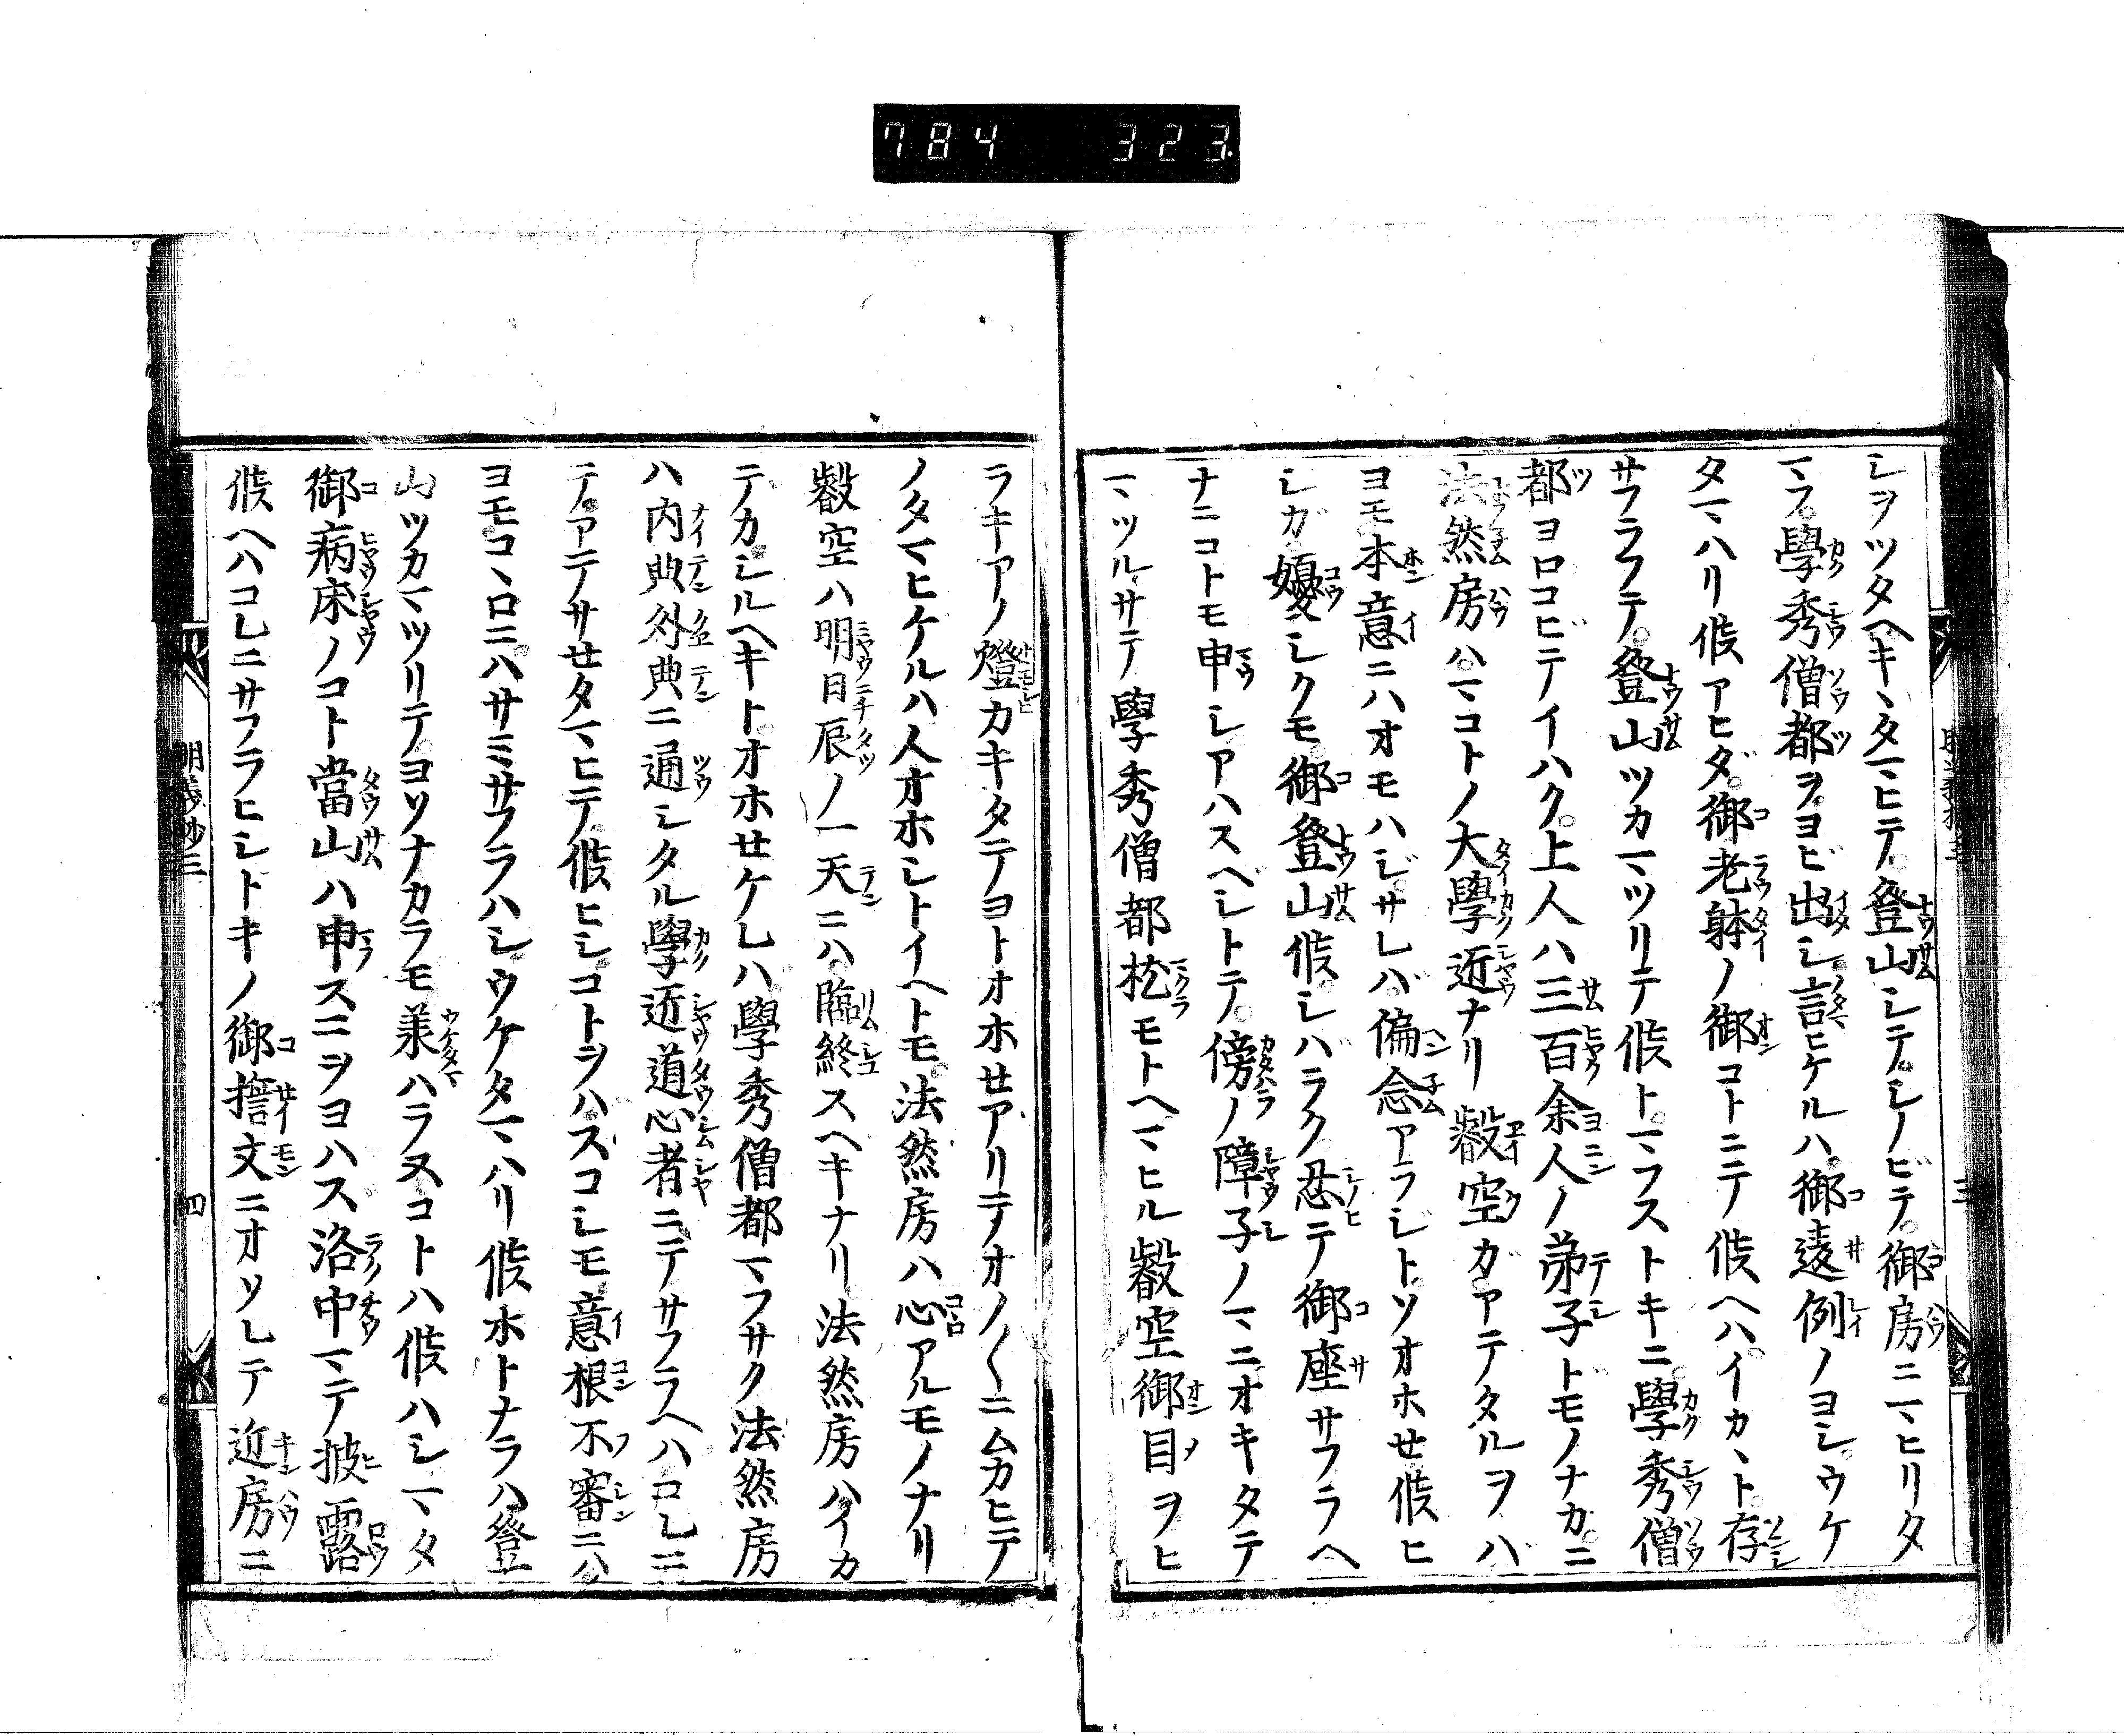 784 323
シヲツタヘキヽタマヒテ。登山シテ。シノビテ。御房ニマヒリタ
マフ。學秀僧都ヲヨビ出シ言ヒケルハ。御違例ノヨシ。ウケ
タマハリ候アヒダ。御老躰ノ御コトニテ候ヘハ。イカヽト。存
サフラフテ。登山ツカマツリテ候ト。マフストキニ。學秀僧
都ヨロコビテイハク。上人ハ三百余人ノ弟子トモノナカニ
法然房ハ。マコトノ大學近ナリ叡空ガアテタルヲハ
ヨモ。本意ニハオモハジ。サレバ。偏念アラジトソオホセ候ヒ
シガ。嬉シクモ。御登山候。シバラク。忍テ御座サフラヘ
ナニコトモ申シアハスベシトテ。傍ノ障子ノマニオキタテ
マツル。サテ學秀僧都枕モトヘマヒル叡空御目ヲヒ
ラキアノ燈カキタテヨトオホセアリテオノ〱ニムカヒテ
ノタマヒケルハ人オホシトイヘトモ法然房ハ心アルモノナリ
叡空ハ明日辰ノ一天ニハ臨終スヘキナリ法然房ハイカ
テカシルヘキト。オホセケレハ學秀僧都マフサク法然房
ハ内典外典ニ通シタル學近道心者ニテサフラヘハコレニ
テ。アテサセタマヒテ候ヒシコトヲハスコシモ意根不審ニハ
ヨモ。コヽロニハサミサフラハシウケタマハリ候ホトナラハ登
山ツカマツリテ。ヨソナカラモ羕ハラヌコトハ候ハシマタ
御病床ノコト當山ハ申スニヲヨハス洛中マテ披露
候ヘハコレニサフラヒシトキノ御誓文ニオソレテ近房ニ
明義抄三
四
三